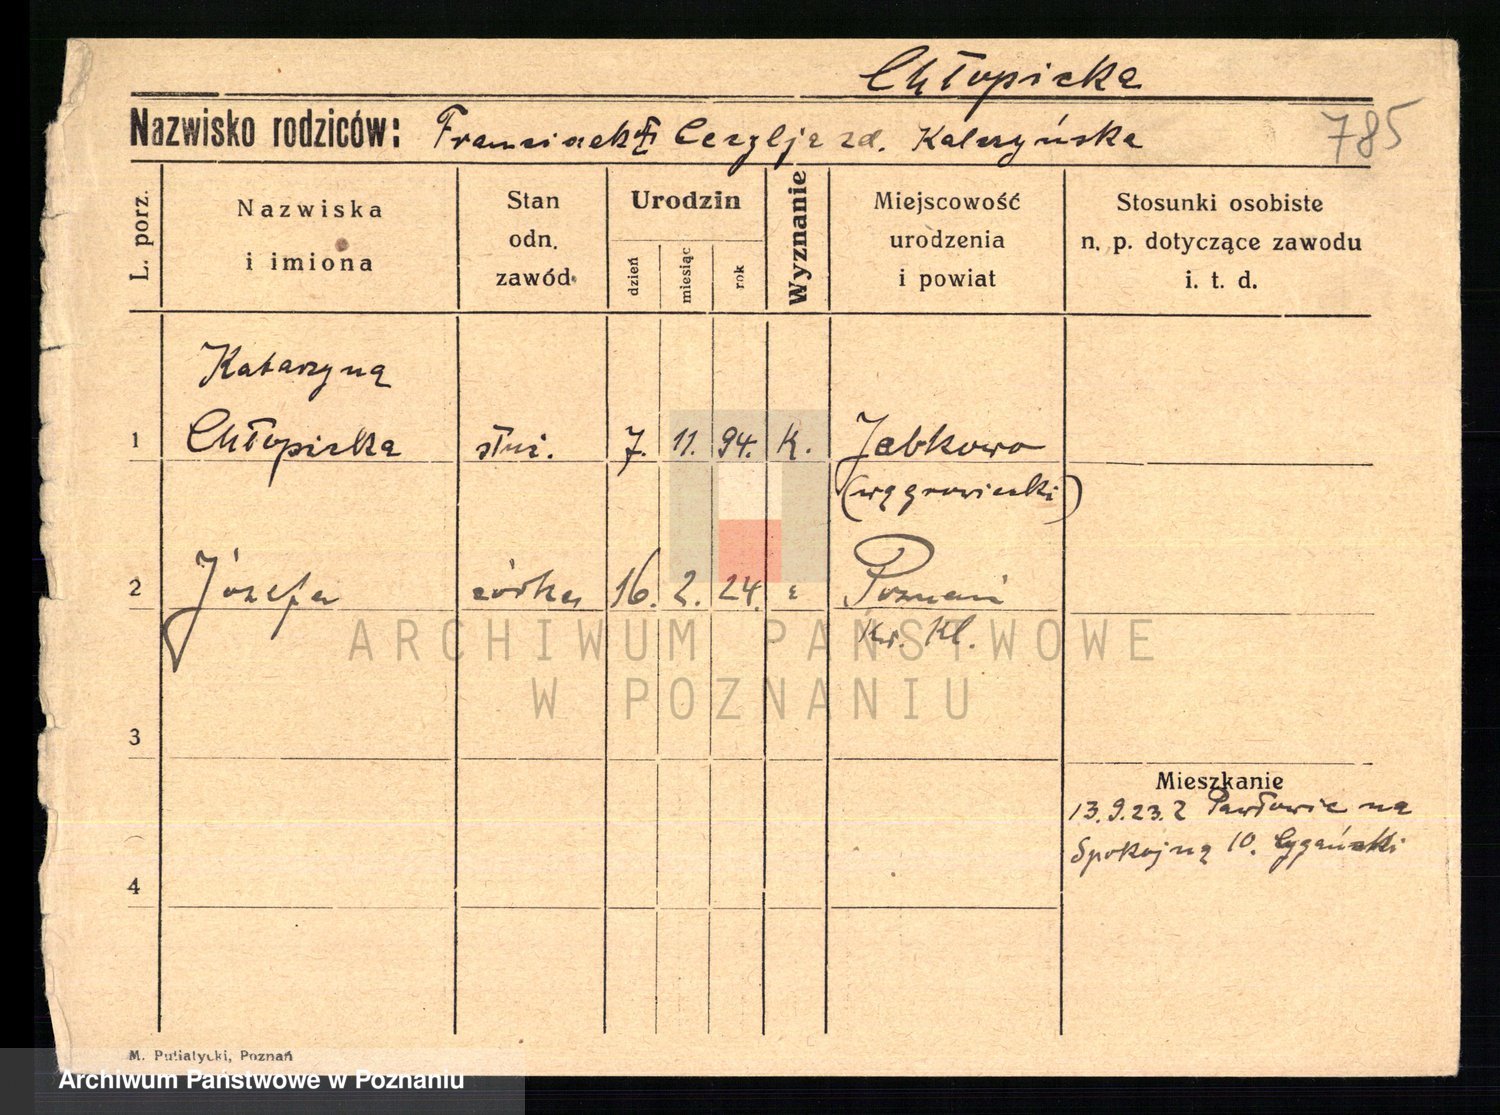 Chłopicka
Nazwisko rodziców: Franciszek i Cecylja zd. Kalczyńska
785
L. porz.
Nazwiska i imiona
Stan odn. zawód
Urodzin
dzień
miesiąc
rok
Wyznanie
Miejscowość urodzenia i powiat
Stosunki osobiste n. p. dotyczące zawodu i. t. d.
Katarzyna
1 Chłopicka służ. 7. 11. 94. K. Jabkowo
(wągrowiecki)
2 Józefa córka 16. 2. 24. Poznań
Kr. Kl.
3
Mieszkanie
13.9.23. z Pawłowic na
Spokojną 10. Cygański
4
M. Putiatycki, Poznań
ARCHIWUM PAŃSTWOWE
W POZNANIU
Archiwum Państwowe w Poznaniu